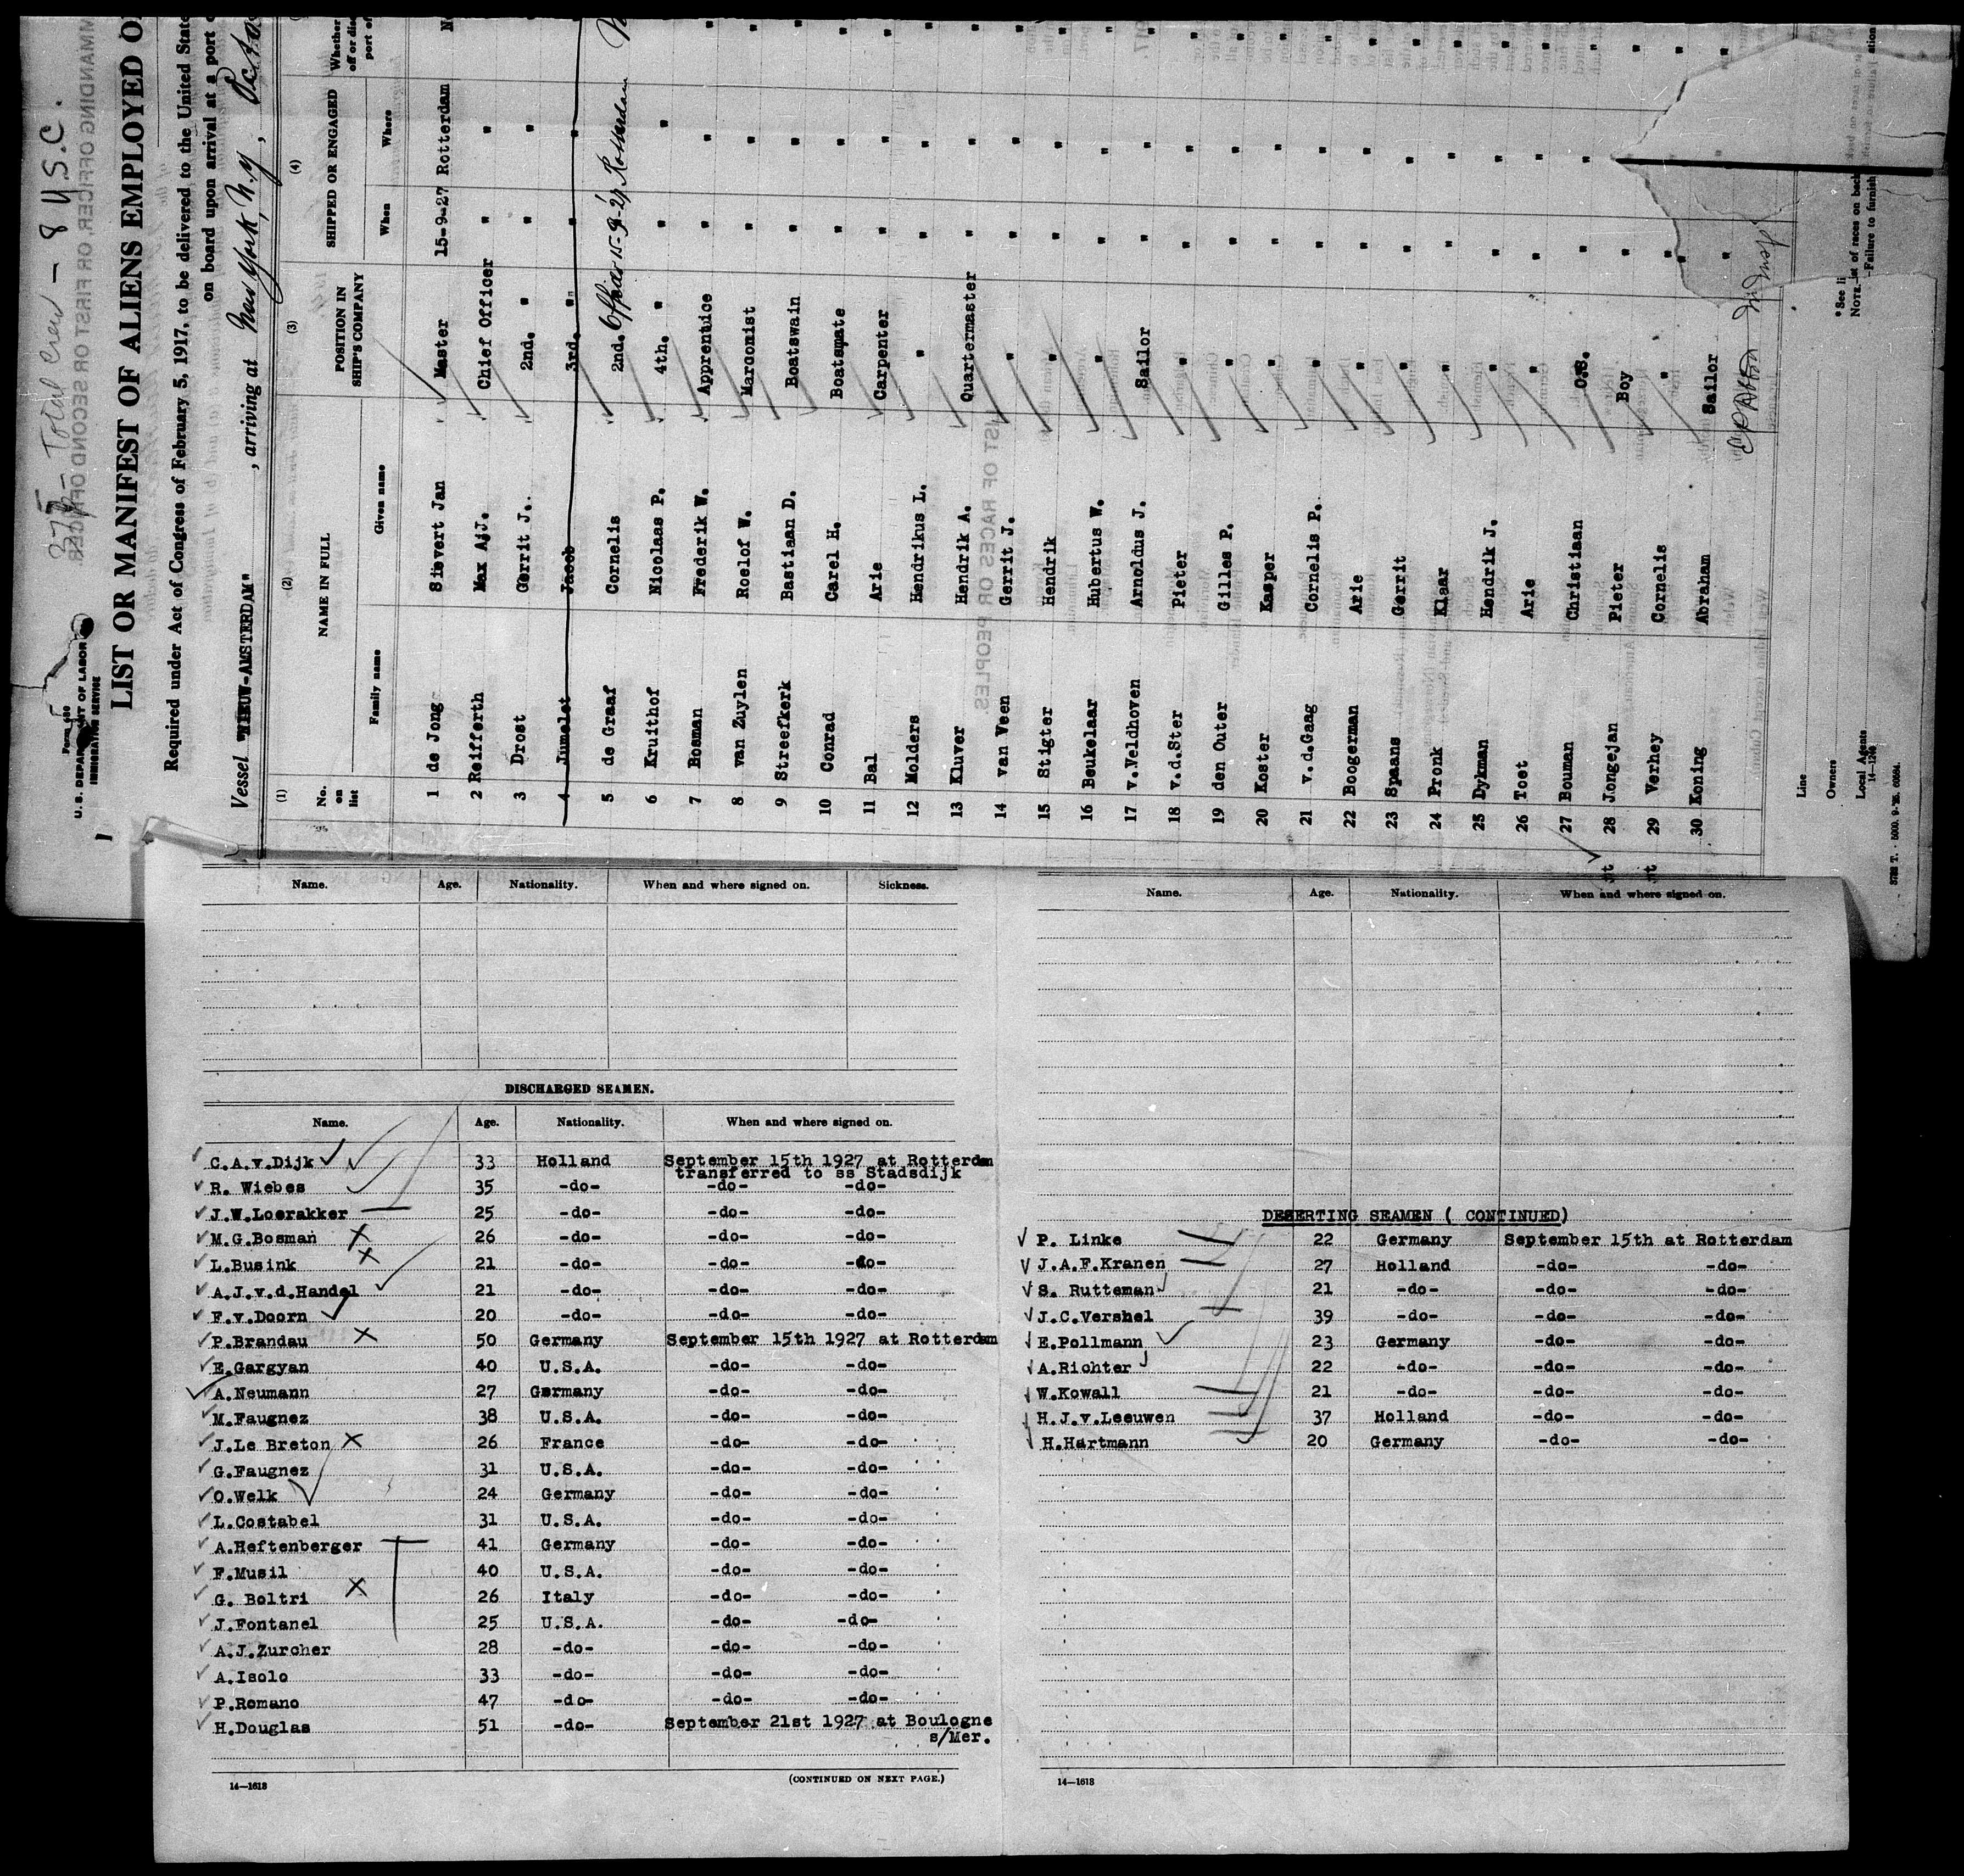 375 - Total Crew - 8 U.S.C.
Form 680
U.S. DEPARTMENT OF LABOR
IMMIGRATION SERVICE
1
LIST OR MANIFEST OF ALIENS EMPLOYED O
Required under Act of Congress of February 5, 1917, to be delivered to the United State
on board upon arrival at a port
Vessel "NIEUW-AMSTERDAM" , arriving at New York, N.Y. , Octo
(1) (2) (3) (4)
No. on list
NAME IN FULL
Family name Given name
POSITION IN SHIP'S COMPANY
SHIPPED OR ENGAGED
When Where
1 de Jong Sievert Jan Master 15-9-27 Rotterdam
2 Reifferth Max A.J. Chief Officer " "
3 Drost Gerrit J. 2nd. " " "
4 Jumelet Jacob 3rd. " " "
5 de Graaf Cornelis 2nd. Officer 15-9-27 Rotterdam
6 Kruithof Nicolaas P. 4th. " " "
7 Bosman Frederik W. Apprentice " "
8 van Zuylen Roelof W. Marconist " "
9 Streefkerk Bastiaan D. Boatswain " "
10 Conrad Carel H. Boatsmate " "
11 Bal Arie Carpenter " "
12 Molders Hendrikus L. " " "
13 Kluver Hendrik A. Quartermaster " "
14 van Veen Gerrit J. " " "
15 Stigter Hendrik " " "
16 Beukelaar Hubertus W. " " "
17 v.Veldhoven Arnoldus J. Sailor " "
18 v.d.Ster Pieter " " "
19 den Outer Gilles P. " " "
20 Koster Kasper " " "
21 v.d.Gaag Cornelis P. " " "
22 Boogerman Arie " " "
23 Spaans Gerrit " " "
24 Pronk Klaar " " "
25 Dykman Hendrik J. " " "
26 Toet Arie " " "
27 Bouman Christiaan O.S. " "
28 Jongejan Pieter Boy "
29 Verhey Cornelis " "
30 Koning Abraham Sailor "
Line
Owners
Local Agents
14-1240
* See li
NOTE.
Failure to furnish
Name. Age. Nationality. When and where signed on. Sickness.
DISCHARGED SEAMEN.
Name. Age. Nationality. When and where signed on.
C.A.v.Dijk 33 Holland September 15th 1927 at Rotterdam
transferred to ss Stadsdijk
R. Wiebes 35 -do- -do- -do-
J.W.Loerakker 25 -do- -do- -do-
M.G.Bosman 26 -do- -do- -do-
L.Busink 21 -do- -do- -do-
A.J.v.d.Handel 21 -do- -do- -do-
F.v.Doorn 20 -do- -do- -do-
P.Brandau 50 Germany September 15th 1927 at Rotterdam
E.Gargyan 40 U.S.A. -do- -do-
A.Neumann 27 Germany -do- -do-
M.Faugnez 38 U.S.A. -do- -do-
J.Le Breton 26 France -do- -do-
G.Faugnez 31 U.S.A. -do- -do-
O.Welk 24 Germany -do- -do-
L.Costabel 31 U.S.A. -do- -do-
A.Heftenberger 41 Germany -do- -do-
F.Musil 40 U.S.A. -do- -do-
G. Boltri 26 Italy -do- -do-
J.Fontanel 25 U.S.A. -do- -do-
A.J.Zurcher 28 -do- -do- -do-
A.Isolo 33 -do- -do- -do-
P.Romano 47 -do- -do- -do-
H.Douglas 51 -do- September 21st 1927 at Boulogne
s/Mer.
14-1613 (CONTINUED ON NEXT PAGE.)
Name. Age. Nationality. When and where signed on.
DESERTING SEAMEN ( CONTINUED)
P. Linke 22 Germany September 15th at Rotterdam
J.A.F.Kranen 27 Holland -do- -do-
S. Rutteman 21 -do- -do- -do-
J.C.Vershel 39 -do- -do- -do-
E.Pollmann 23 Germany -do- -do-
A.Richter 22 -do- -do- -do-
W.Kowall 21 -do- -do- -do-
H.J.v.Leeuwen 37 Holland -do- -do-
H.Hartmann 20 Germany -do- -do-
14-1613